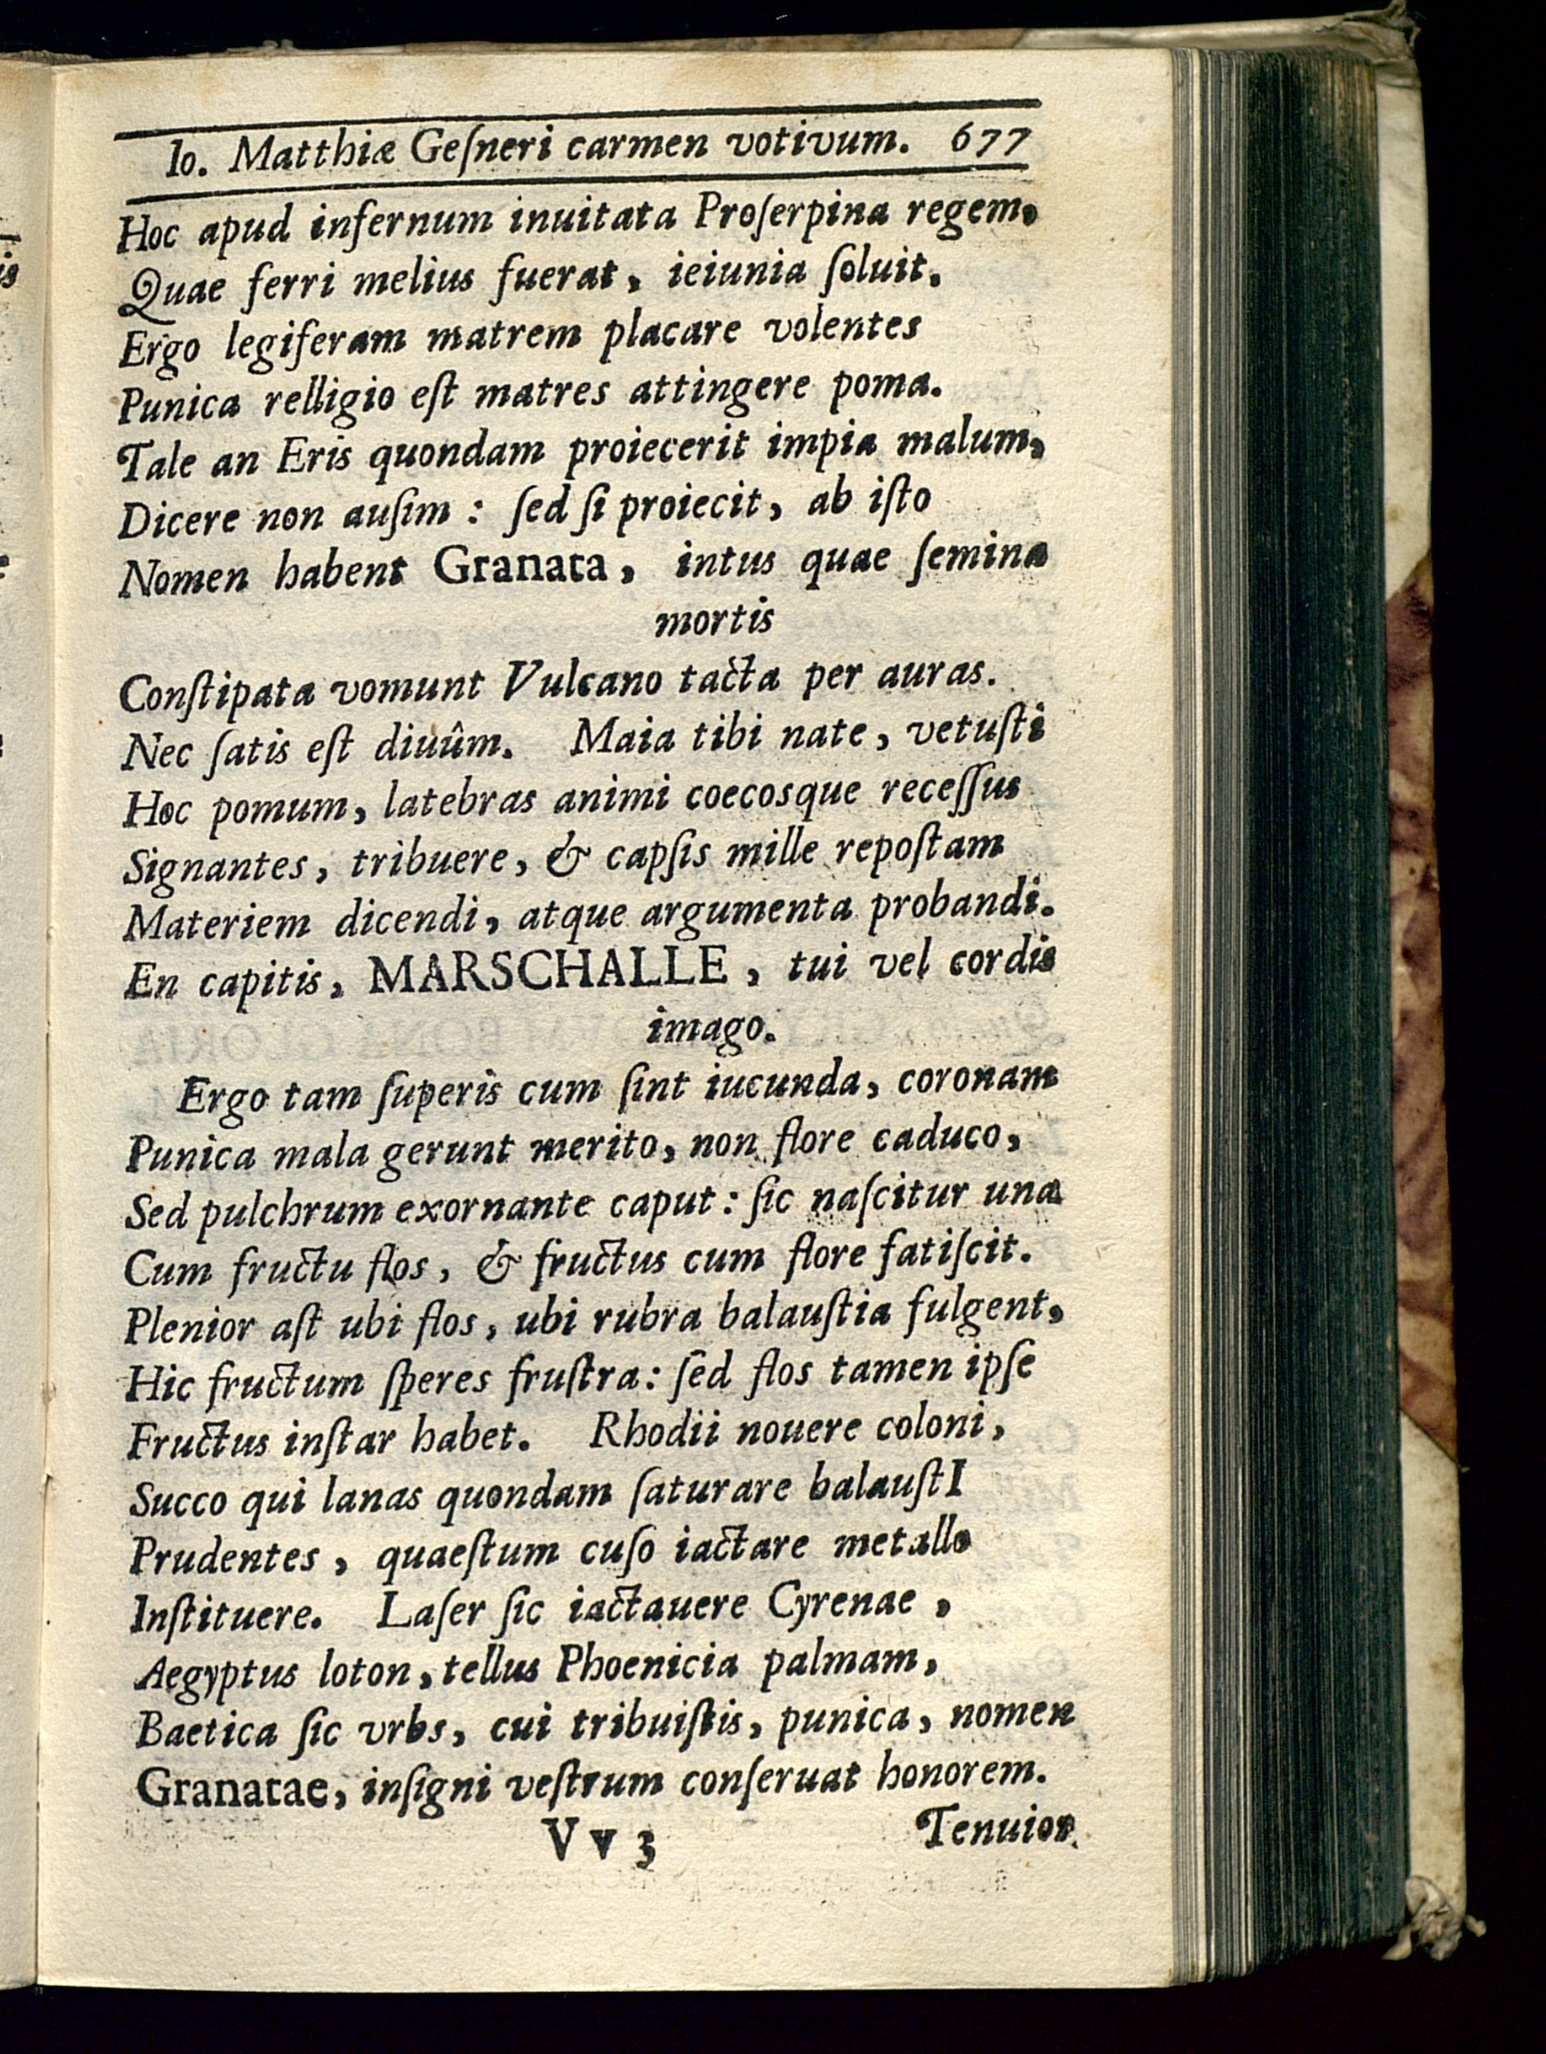 Io. Matthiæ Geſneri carmen votivum. 677
Hoc apud infernum inuitata Proſerpina regem,
Quae ferri melius fuerat, ieiunia ſoluit.
Ergo legiferam matrem placare volentes
Punica relligio eſt matres attingere poma.
Tale an Eris quondam proiecerit impia malum,
Dicere non auſim: ſed ſi proiecit, ab iſto
Nomen habent Granata, intus quae ſemina
mortis
Conſtipata vomunt Vulcano tacta per auras.
Nec ſatis eſt diuûm. Maia tibi nate, vetuſti
Hoc pomum, latebras animi coecosque receſſus
Signantes, tribuere, & capſis mille repoſtam
Materiem dicendi, atque argumenta probandi.
En capitis, MARSCHALLE, tui vel cordis
imago.
Ergo tam ſuperis cum ſint iucunda, coronam
Punica mala gerunt merito, non flore caduco,
Sed pulchrum exornante caput: ſic naſcitur una
Cum fructu flos, & fructus cum flore fatiſcit.
Plenior aſt ubi flos, ubi rubra balauſtia fulgent,
Hic fructum ſperes fruſtra: ſed flos tamen ipſe
Fructus inſtar habet. Rhodii nouere coloni,
Succo qui lanas quondam ſaturare balauſtI
Prudentes, quaeſtum cuſo iactare metallo
Inſtituere. Laſer ſic iactauere Cyrenae,
Aegyptus loton, tellus Phoenicia palmam,
Baetica ſic vrbs, cui tribuiſtis, punica, nomen
Granatae, inſigni veſtrum conſeruat honorem.
V v 3 Tenuior